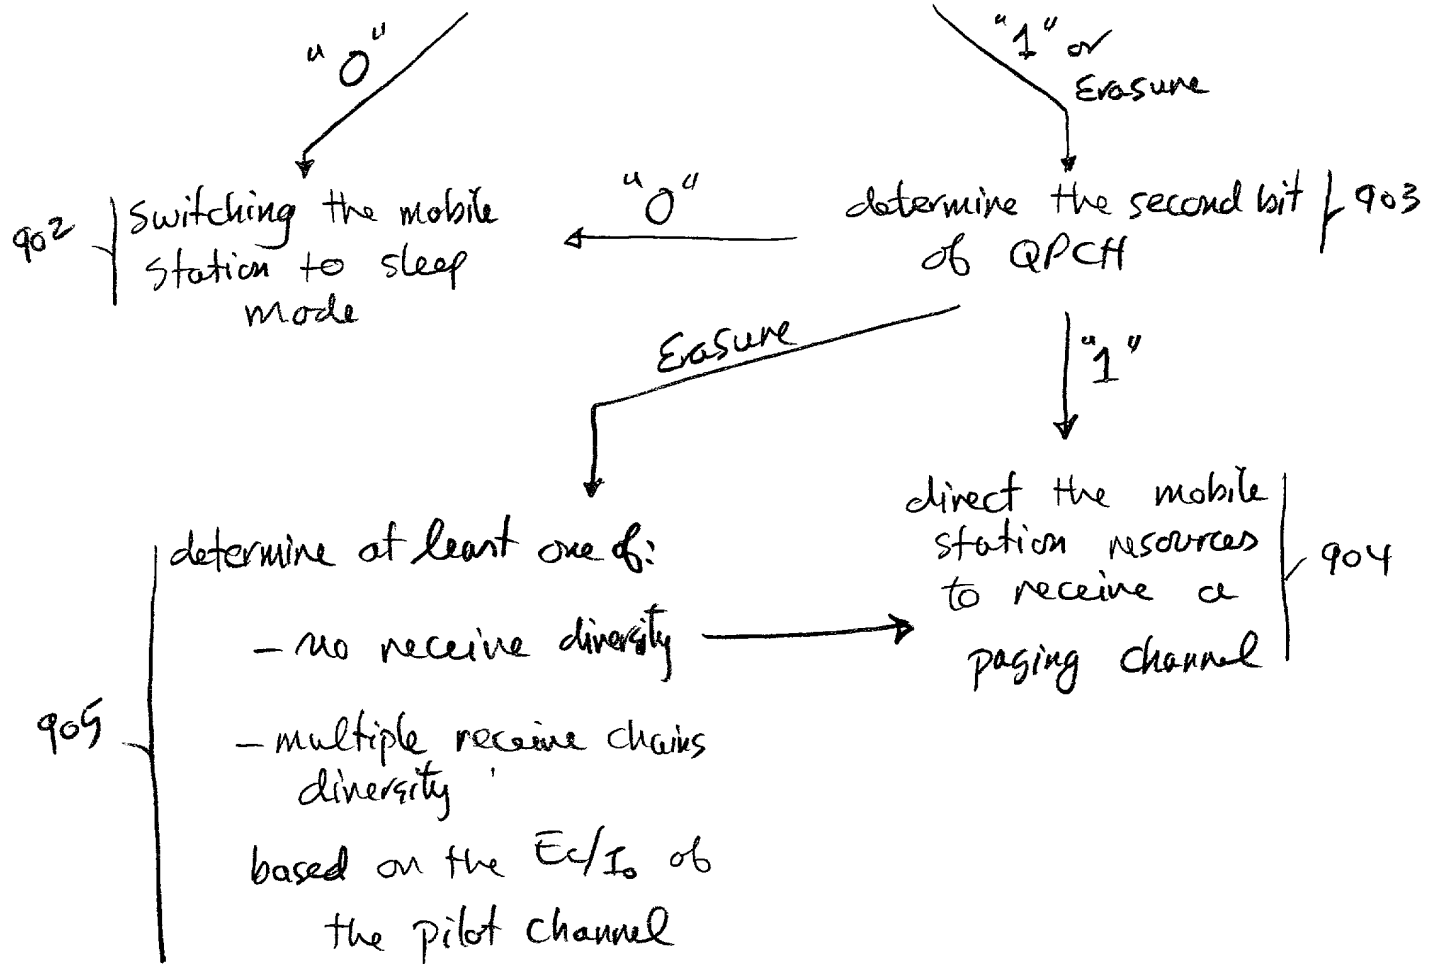 "0"
"1" or
Erasure
902
switching the mobile
station to sleep
mode
"0"
determine the second bit
of QPCH
903
Erasure
"1"
direct the mobile
station resources
to receive a
paging channel
904
905
determine at least one of:
- no receive diversity
- multiple receive chains
diversity
based on the Ec/Io of
the pilot channel